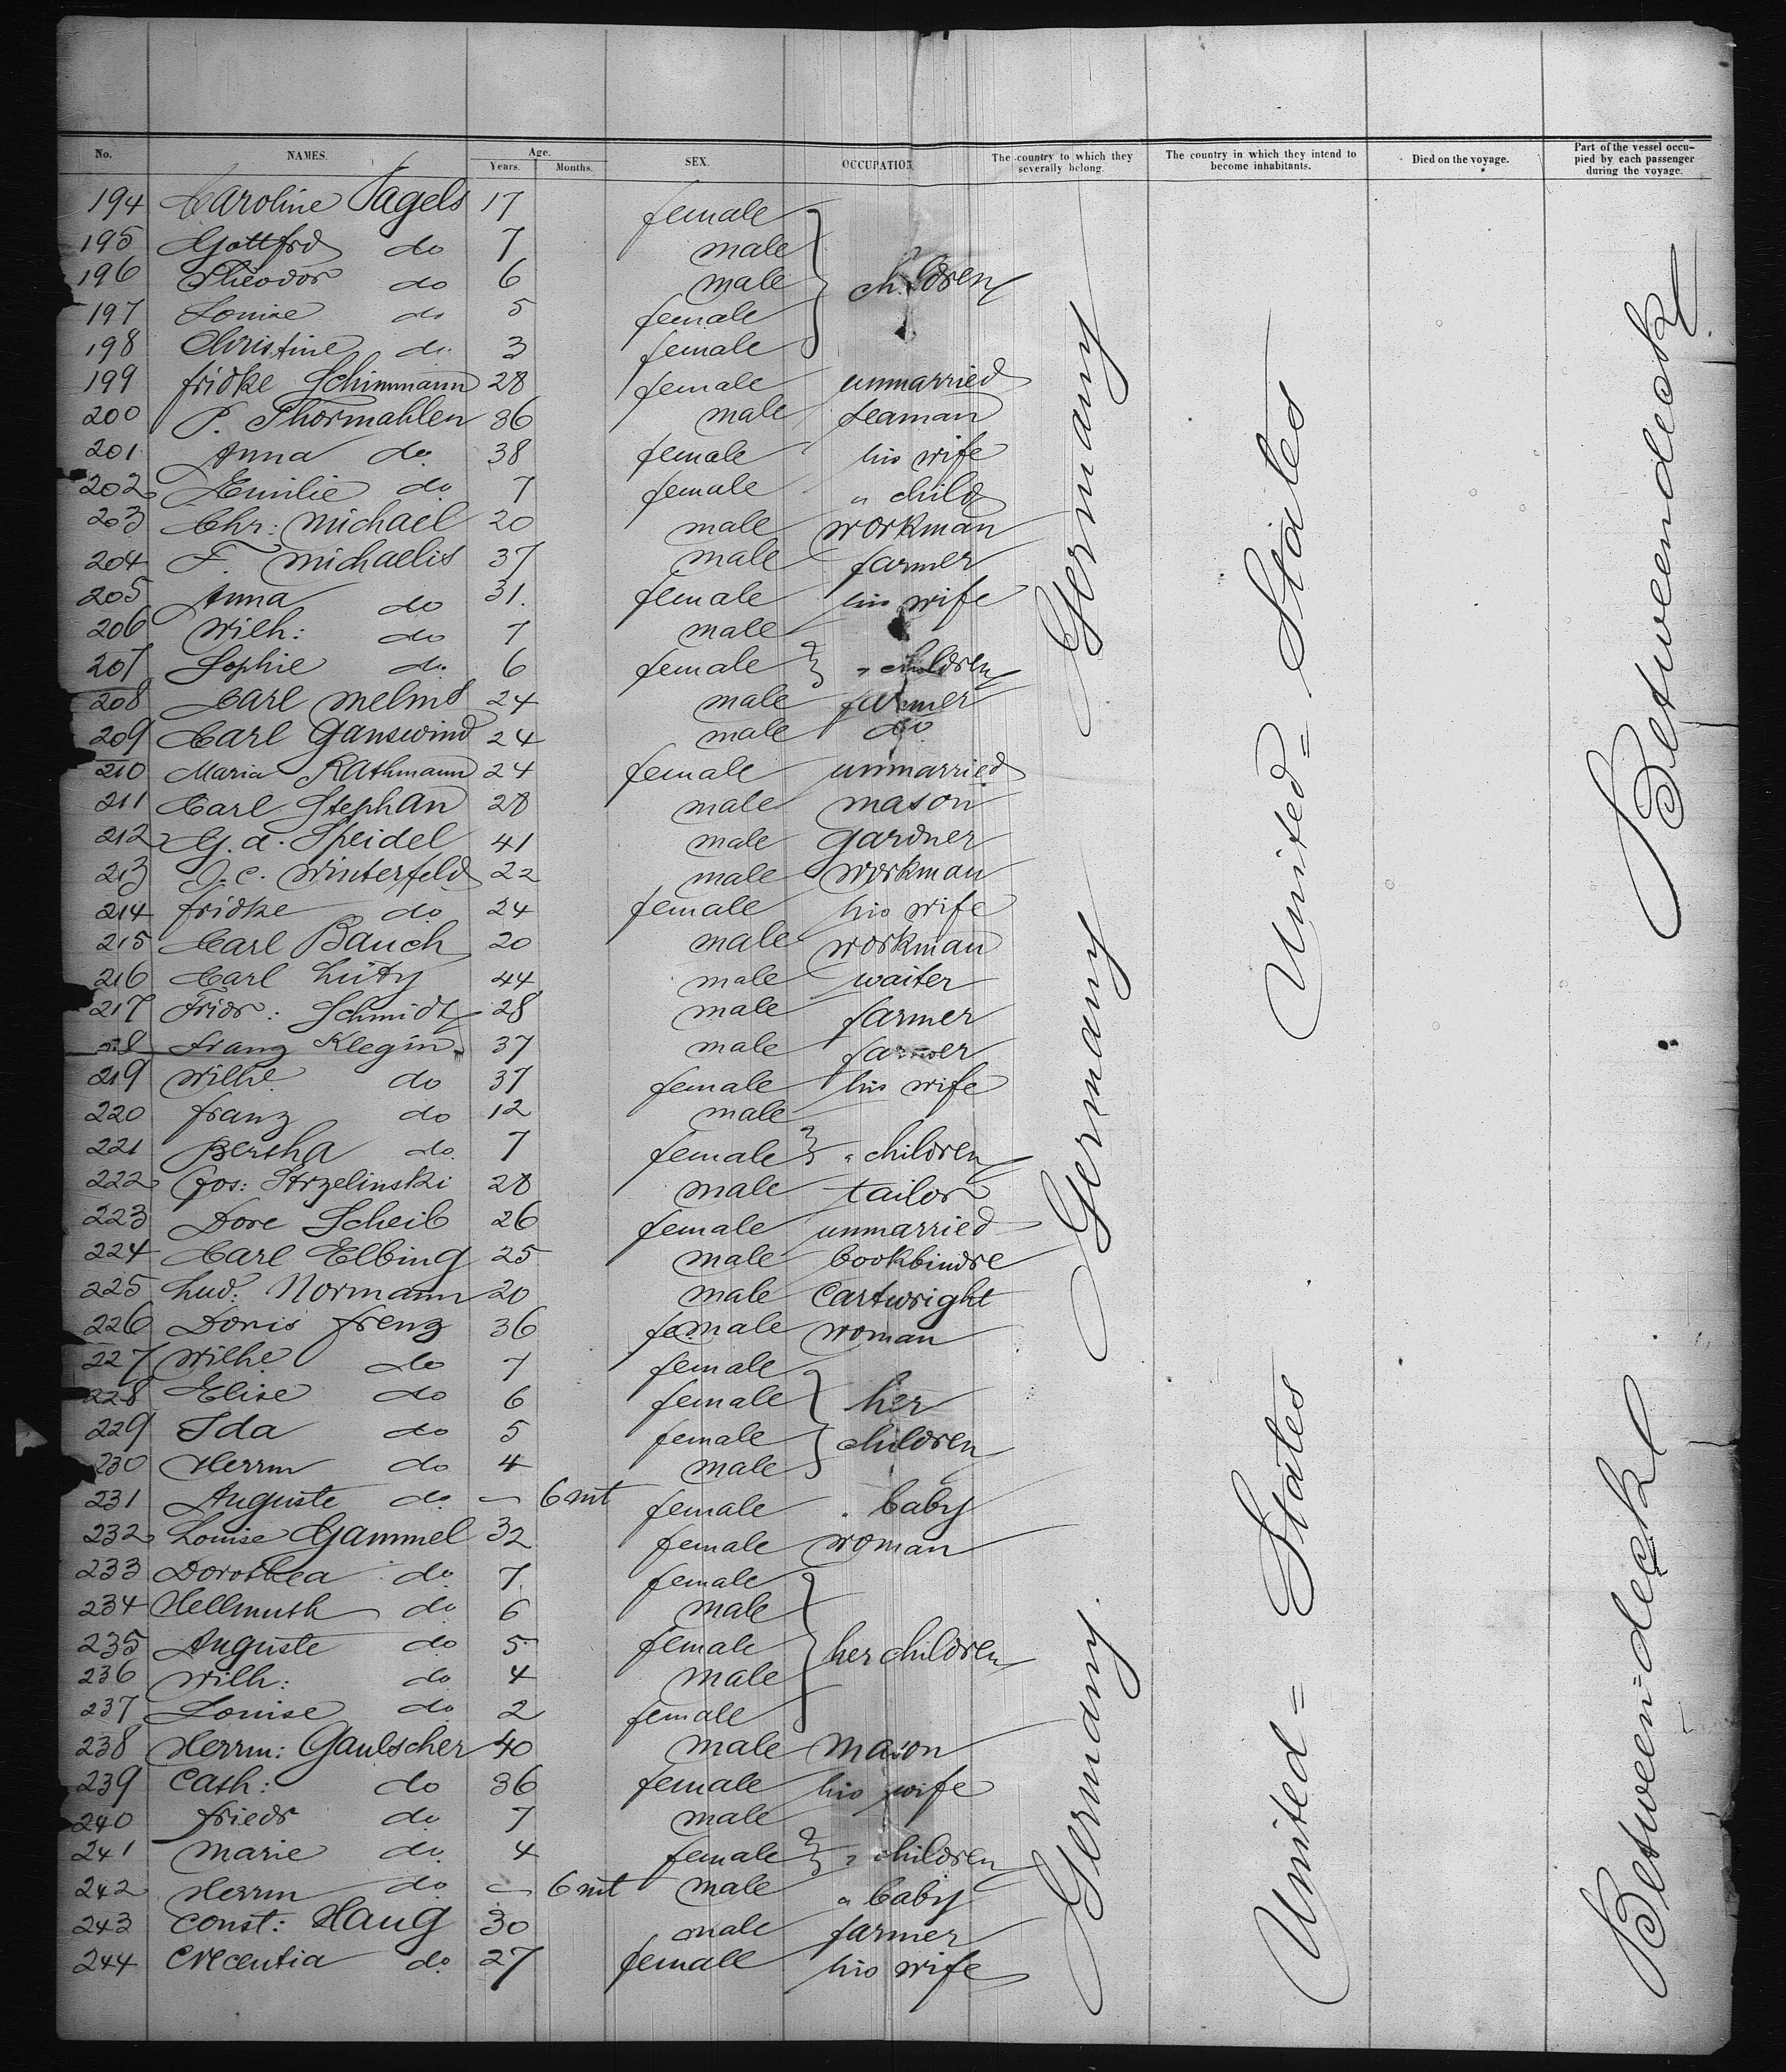 No. NAMES. Age. Years. Months. SEX. OCCUPATION. The country to which they severally belong. The country in which they intend to become inhabitants. Died on the voyage. Part of the vessel occupied by each passenger during the voyage.
194 Caroline Tagels 17 female
195 Gottfrd do 7 male
196 Theodor do 6 male children
197 Louise do 5 female
198 Christine do 3 female
199 fridke Schimmann 28 female unmarried
200 P. Thormahlen 36 male seaman
201 Anna do 38 female his wife
202 Emilie do 7 female " child
203 Chr: Michael 20 male workman
204 F. Michaelis 37 male farmer
205 Anna do 31. female his wife
206 Wilh: do 7 male
207 Sophie do 6 female " children
208 Carl Melms 24 male farmer
209 Carl Ganswind 24 male do
210 Maria Rathmann 24 female unmarried
211 Carl Stephan 28 male mason
212 G. A. Speidel 41 male gardner
213 J. C. Winterfeld 22 male workman
214 fridke do 24 female his wife
215 Carl Bauch 20 male workman
216 Carl Lüty 44 male waiter
217 Fridr: Schmidt 28 male farmer
218 Franz Klegin 37 male farmer
219 Wilhe do 37 female his wife
220 franz do 12 male
221 Bertha do 7 female " children
222 Jos: Strzelinski 28 male tailor
223 Dore Scheib 26 female unmarried
224 Carl Elbing 25 male bookbindre
225 Lud: Normann 20 male Cartwright
226 Doris frenz 36 female woman
227 Wilhe do 7 female
228 Elise do 6 female her
229 Ida do 5 female children
230 Herrm do 4 male
231 Auguste do — 6 mt female " baby
232 Louise Gammel 32 female woman
233 Dorothea do 7 female
234 Hellmuth do 6 male
235 Auguste do 5 female her children
236 Wilh: do 4 male
237 Louise do 2 female
238 Herrm: Gaulscher 40 male Mason
239 Cath: do 36 female his wife
240 friedr do 7 male
241 Marie do 4 female " children
242 Herrm do — 6 mt male " baby
243 Const: Haug 30 male farmer
244 Crecentia do 27 female his wife
Germany
Germany
Germany.
United = States
United = States
Betweendeck
Between-deck